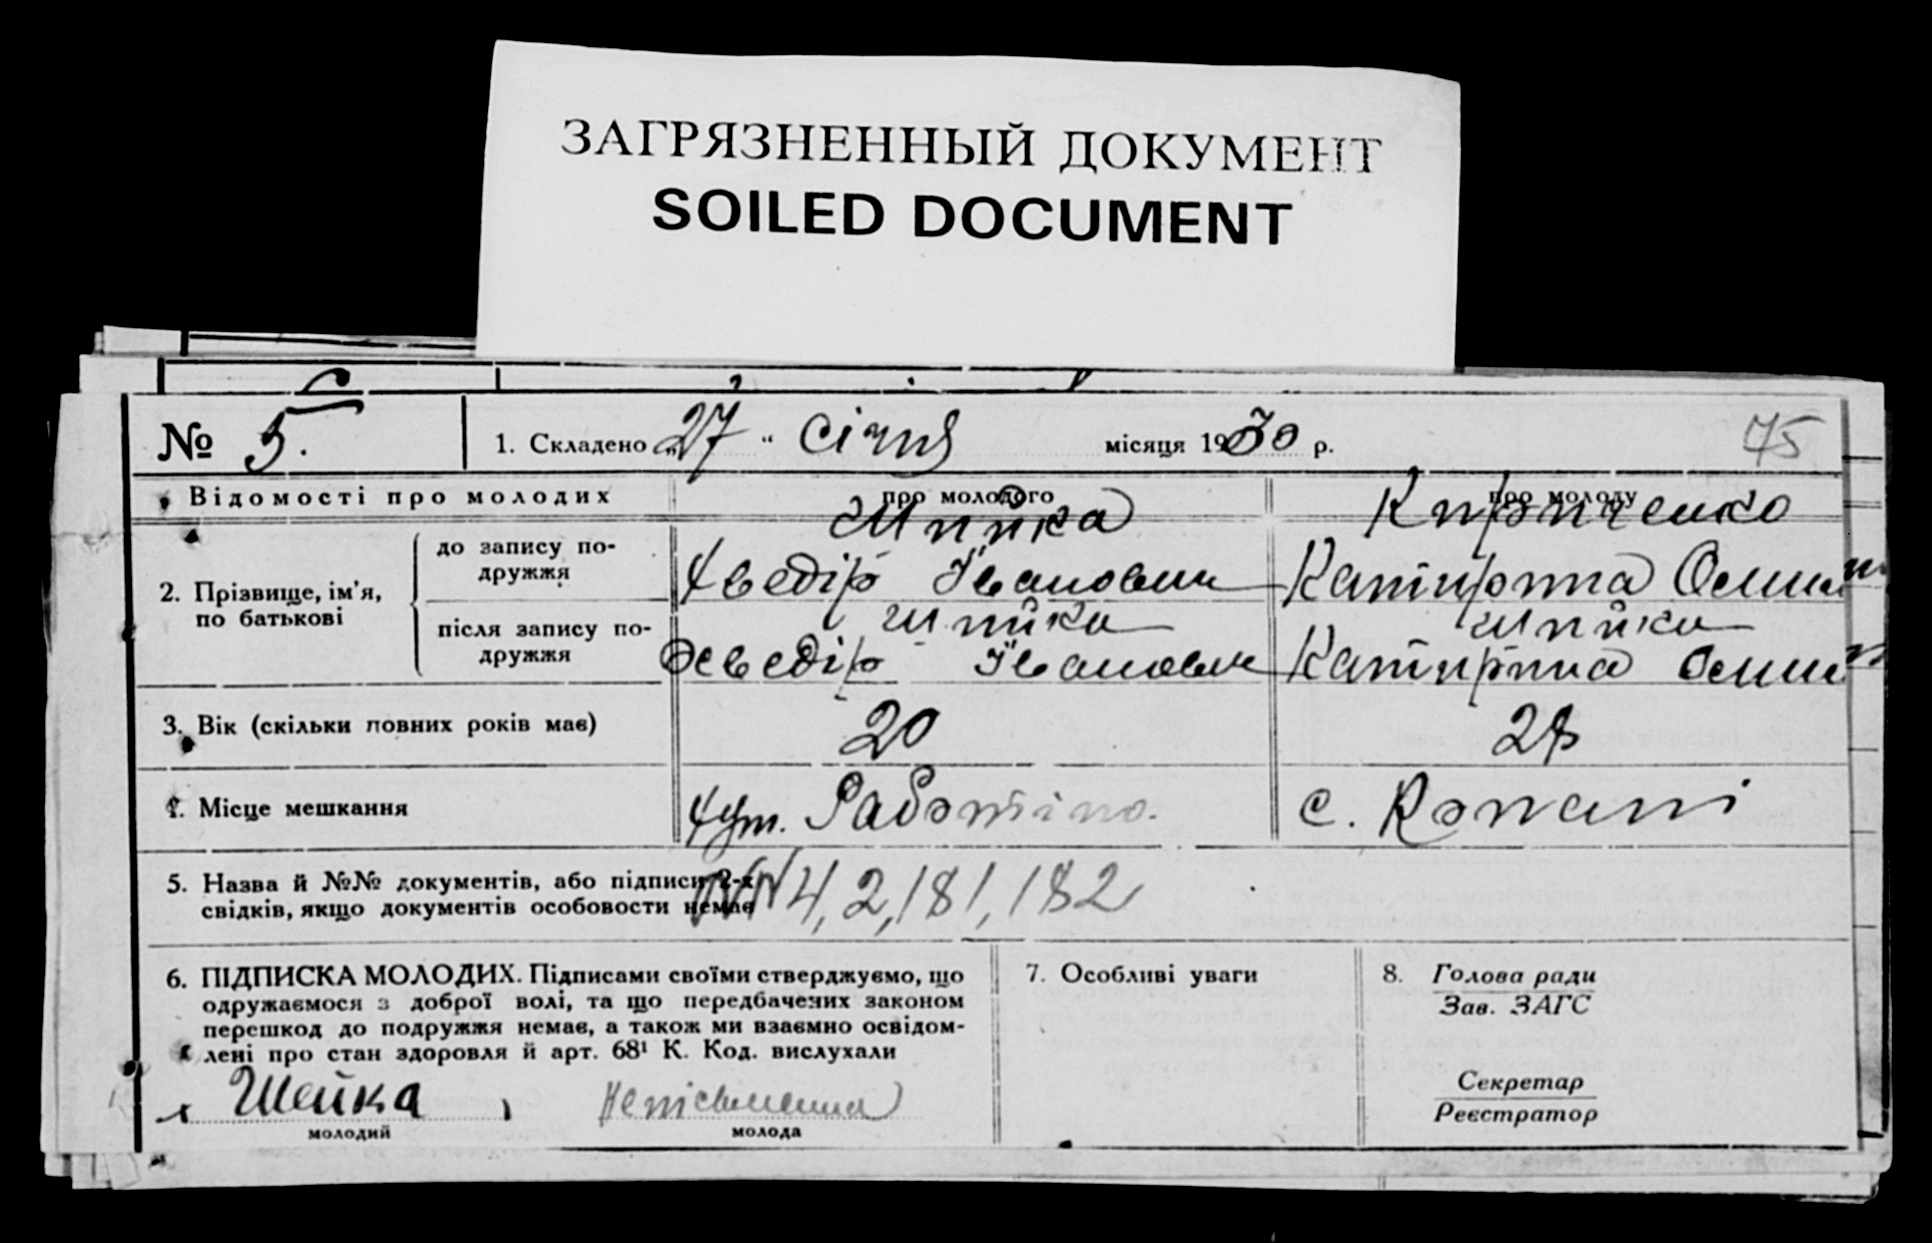 ЗАГРЯЗНЕННЫЙ ДОКУМЕНТ
SOILED DOCUMENT
№ 5. 1. Складено „27“ Січня місяця 1930 р. 75
Відомості про молодих про молодого про молоду
Шпйка Кириченко
2. Прізвище, ім'я, по батькові
до запису по-
дружжя
Хведір Іванович Катирина
після запису по-
дружжя
Шпйка Шпйка
Хведір Іванович Катирина
3. Вік (скільки повних років має) 20
4. Місце мешкання хут. с. Копані
5. Назва й №№ документів, або підписи 2-х
свідків, якщо документів особовости немає
NN 4, 2, 181, 182
6. ПІДПИСКА МОЛОДИХ. Підписами своїми стверджуємо, що
одружаємося з доброї волі, та що передбачених законом
перешкод до подружжя немає, а також ми взаємно освідом-
лені про стан здоровля й арт. 68¹ К. Код. вислухали
Шейка Непісьменна
молодий молода
7. Особливі уваги
8. Голова ради
Зав. ЗАГС
Секретар
Реєстратор